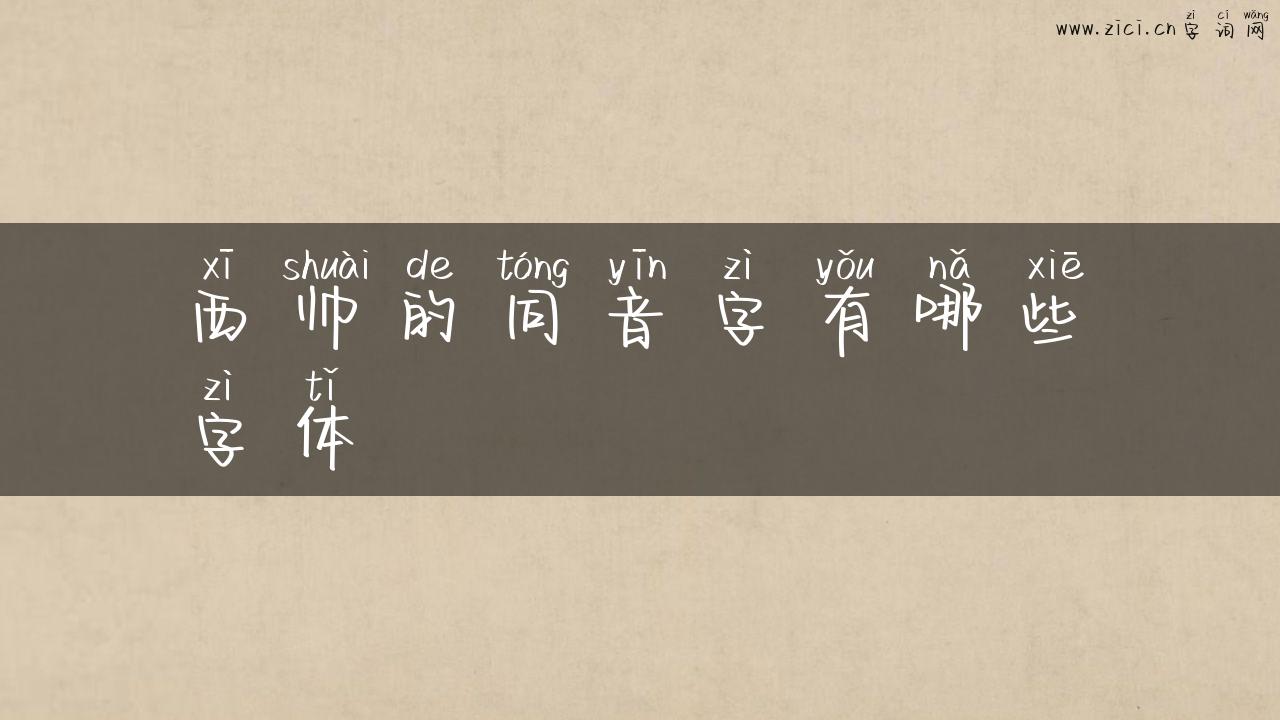 zì cí wǎng
www.zici.cn 字词网
xī shuài de tóng yīn zì yǒu nǎ xiē
西帅的同音字有哪些
zì tǐ
字体